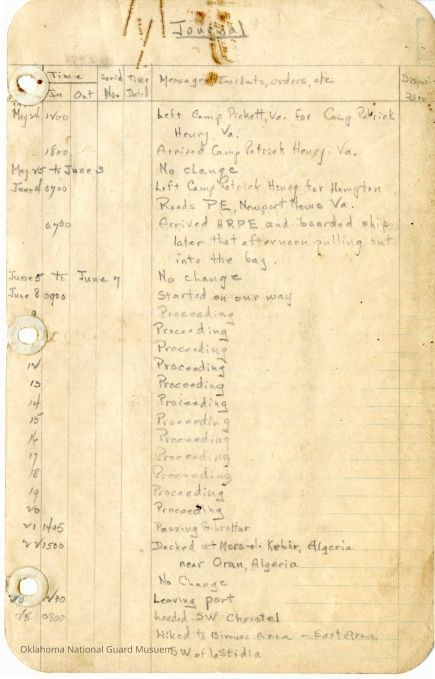 Journal
Time Serial Time Messages, Incidents, orders, etc
In Out No. Dated
May 24 1200 Left Camp Pickett, Va. for Camp Patrick
Henry, Va.
1800 Arrived Camp Patrick Henry, Va.
May 25 to June 3 No change
June 4 0700 Left Camp Patrick Henry for Hampton
Roads PE, Newport News Va.
0730 Arrived HRPE and boarded ship
later that afternoon pulling out
into the bay.
June 5 to June 7 No change
June 8 0900 Started on our way
9 Proceeding
Proceeding
Proceeding
12 Proceeding
13 Proceeding
14 Proceeding
15 Proceeding
16 Proceeding
17 Proceeding
18 Proceeding
19 Proceeding
20 Proceeding
21 1445 Passing Gibraltar
22 1500 Docked at Mers-el-Kebir, Algeria
near Oran, Algeria
No Change
Leaving port
0800 landed SW Christel
Hiked to Bivouac Area - East Area
SW of laStidia
Oklahoma National Guard Musuem